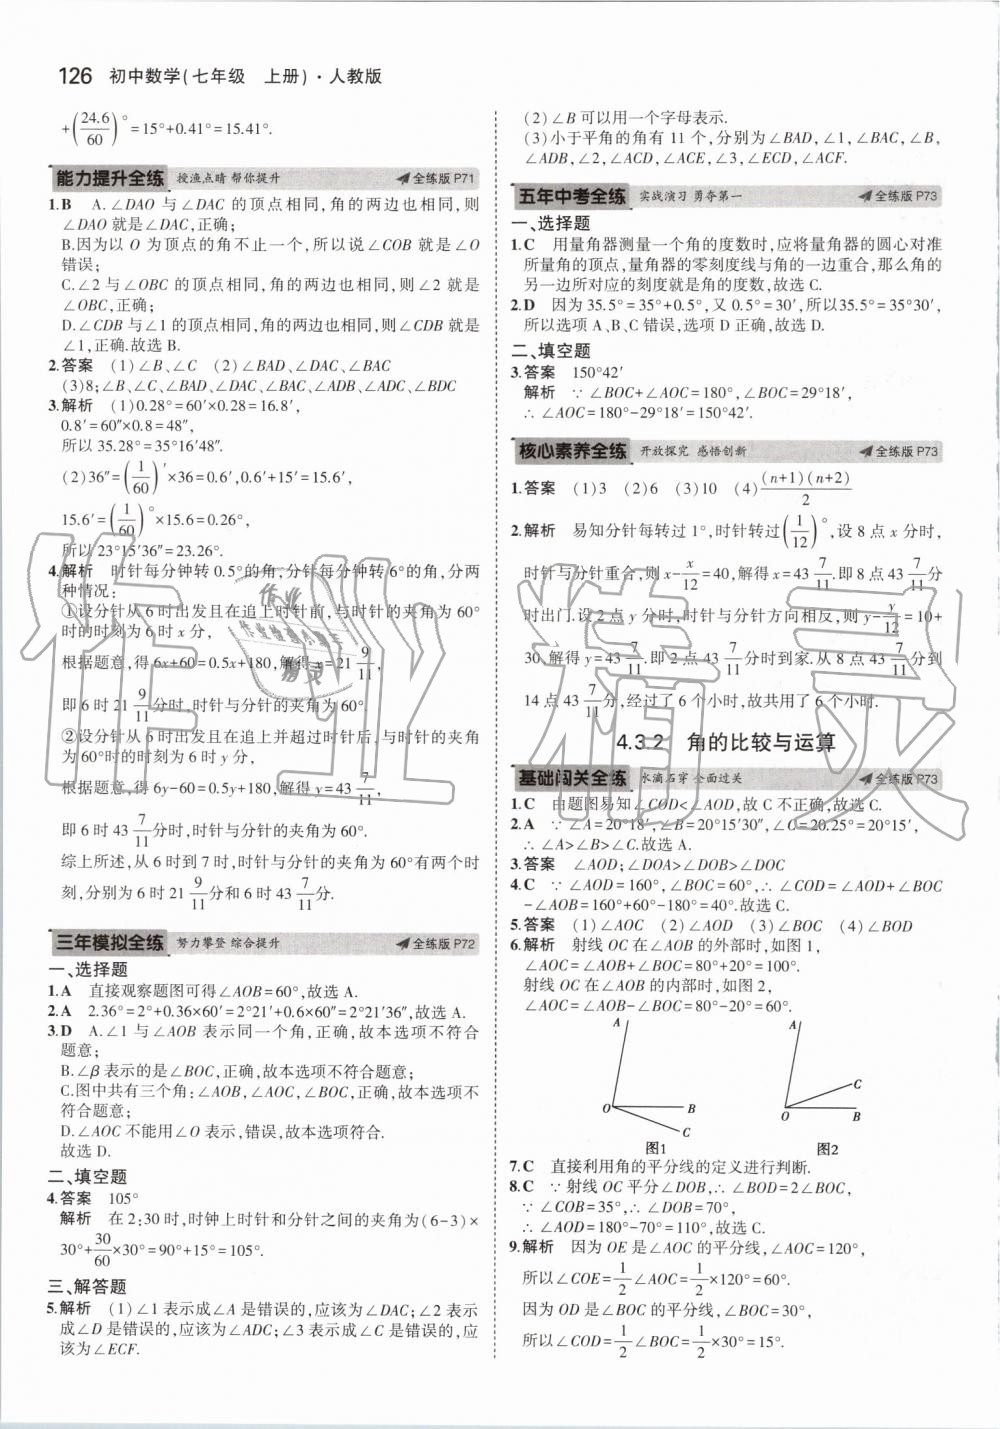 126 初中数学(七年级 上册)·人教版
+(24.6/60)°=15°+0.41°=15.41°.
能力提升全练 授渔点睛 帮你提升 全练版 P71
1.B A.∠DAO 与∠DAC 的顶点相同,角的两边也相同,则
∠DAO 就是∠DAC,正确;
B.因为以 O 为顶点的角不止一个,所以说∠COB 就是∠O
错误;
C.∠2 与∠OBC 的顶点相同,角的两边也相同,则∠2 就是
∠OBC,正确;
D.∠CDB 与∠1 的顶点相同,角的两边也相同,则∠CDB 就是
∠1,正确.故选 B.
2.答案 (1)∠B、∠C (2)∠BAD、∠DAC、∠BAC
(3)8;∠B、∠C、∠BAD、∠DAC、∠BAC、∠ADB、∠ADC、∠BDC
3.解析 (1)0.28°=60′×0.28=16.8′,
0.8′=60″×0.8=48″,
所以 35.28°=35°16′48″.
(2)36″=(1/60)′×36=0.6′,0.6′+15′=15.6′,
15.6′=(1/60)°×15.6=0.26°,
所以 23°15′36″=23.26°.
4.解析 时针每分钟转 0.5°的角,分针每分钟转 6°的角,分两
种情况:
①设分针从 6 时出发且在追上时针前,与时针的夹角为 60°
时的时刻为 6 时 x 分,
根据题意,得 6x+60=0.5x+180,解得 x=21 9/11,
即 6 时 21 9/11 分时,时针与分针的夹角为 60°.
②设分针从 6 时出发且在追上并超过时针后,与时针的夹角
为 60°时的时刻为 6 时 y 分,
根据题意,得 6y-60=0.5y+180,解得 y=43 7/11,
即 6 时 43 7/11 分时,时针与分针的夹角为 60°.
综上所述,从 6 时到 7 时,时针与分针的夹角为 60°有两个时
刻,分别为 6 时 21 9/11 分和 6 时 43 7/11 分.
三年模拟全练 努力攀登 综合提升 全练版 P72
一、选择题
1.A 直接观察题图可得∠AOB=60°,故选 A.
2.A 2.36°=2°+0.36×60′=2°21′+0.6×60″=2°21′36″,故选 A.
3.D A.∠1 与∠AOB 表示同一个角,正确,故本选项不符合
题意;
B.∠β 表示的是∠BOC,正确,故本选项不符合题意;
C.图中共有三个角:∠AOB,∠AOC,∠BOC,正确,故本选项不
符合题意;
D.∠AOC 不能用∠O 表示,错误,故本选项符合.
故选 D.
二、填空题
4.答案 105°
解析 在 2:30 时,时钟上时针和分针之间的夹角为(6-3)×
30°+30/60×30°=90°+15°=105°.
三、解答题
5.解析 (1)∠1 表示成∠A 是错误的,应该为∠DAC;∠2 表示
成∠D 是错误的,应该为∠ADC;∠3 表示成∠C 是错误的,应
该为∠ECF.
(2)∠B 可以用一个字母表示.
(3)小于平角的角有 11 个,分别为∠BAD,∠1,∠BAC,∠B,
∠ADB,∠2,∠ACD,∠ACE,∠3,∠ECD,∠ACF.
五年中考全练 实战演习 勇夺第一 全练版 P73
一、选择题
1.C 用量角器测量一个角的度数时,应将量角器的圆心对准
所量角的顶点,量角器的零刻度线与角的一边重合,那么角的
另一边所对应的刻度就是角的度数,故选 C.
2.D 因为 35.5°=35°+0.5°,又 0.5°=30′,所以35.5°=35°30′,
所以选项 A、B、C 错误,选项 D 正确,故选 D.
二、填空题
3.答案 150°42′
解析 ∵∠BOC+∠AOC=180°,∠BOC=29°18′,
∴∠AOC=180°-29°18′=150°42′.
核心素养全练 开放探究 感悟创新 全练版 P73
1.答案 (1)3 (2)6 (3)10 (4)(n+1)(n+2)/2
2.解析 易知分针每转过 1°,时针转过(1/12)°,设 8 点 x 分时,
时针与分针重合,则 x-x/12=40,解得 x=43 7/11.即 8 点 43 7/11 分
时出门.设 2 点 y 分时,时针与分针方向相反,则 y-y/12=10+
30,解得 y=43 7/11.即 2 点 43 7/11 分时到家.从 8 点 43 7/11 分到
14 点 43 7/11 分,经过了 6 个小时,故共用了 6 个小时.
4.3.2 角的比较与运算
基础闯关全练 水滴石穿 全面过关 全练版 P73
1.C 由题图易知∠COD<∠AOD,故 C 不正确,故选 C.
2.A ∵∠A=20°18′,∠B=20°15′30″,∠C=20.25°=20°15′,
∴∠A>∠B>∠C.故选 A.
3.答案 ∠AOD;∠DOA>∠DOB>∠DOC
4.C ∵∠AOD=160°,∠BOC=60°,∴∠COD=∠AOD+∠BOC
-∠AOB=160°+60°-180°=40°.故选 C.
5.答案 (1)∠AOC (2)∠AOD (3)∠BOC (4)∠BOD
6.解析 射线 OC 在∠AOB 的外部时,如图 1,
∠AOC=∠AOB+∠BOC=80°+20°=100°.
射线 OC 在∠AOB 的内部时,如图 2,
∠AOC=∠AOB-∠BOC=80°-20°=60°.
A
O
B
C
图1
A
C
O
B
图2
7.C 直接利用角的平分线的定义进行判断.
8.C ∵射线 OC 平分∠DOB,∴∠BOD=2∠BOC,
∵∠COB=35°,∴∠DOB=70°,
∴∠AOD=180°-70°=110°,故选 C.
9.解析 因为 OE 是∠AOC 的平分线,∠AOC=120°,
所以∠COE=1/2∠AOC=1/2×120°=60°.
因为 OD 是∠BOC 的平分线,∠BOC=30°,
所以∠COD=1/2∠BOC=1/2×30°=15°.
作业精灵